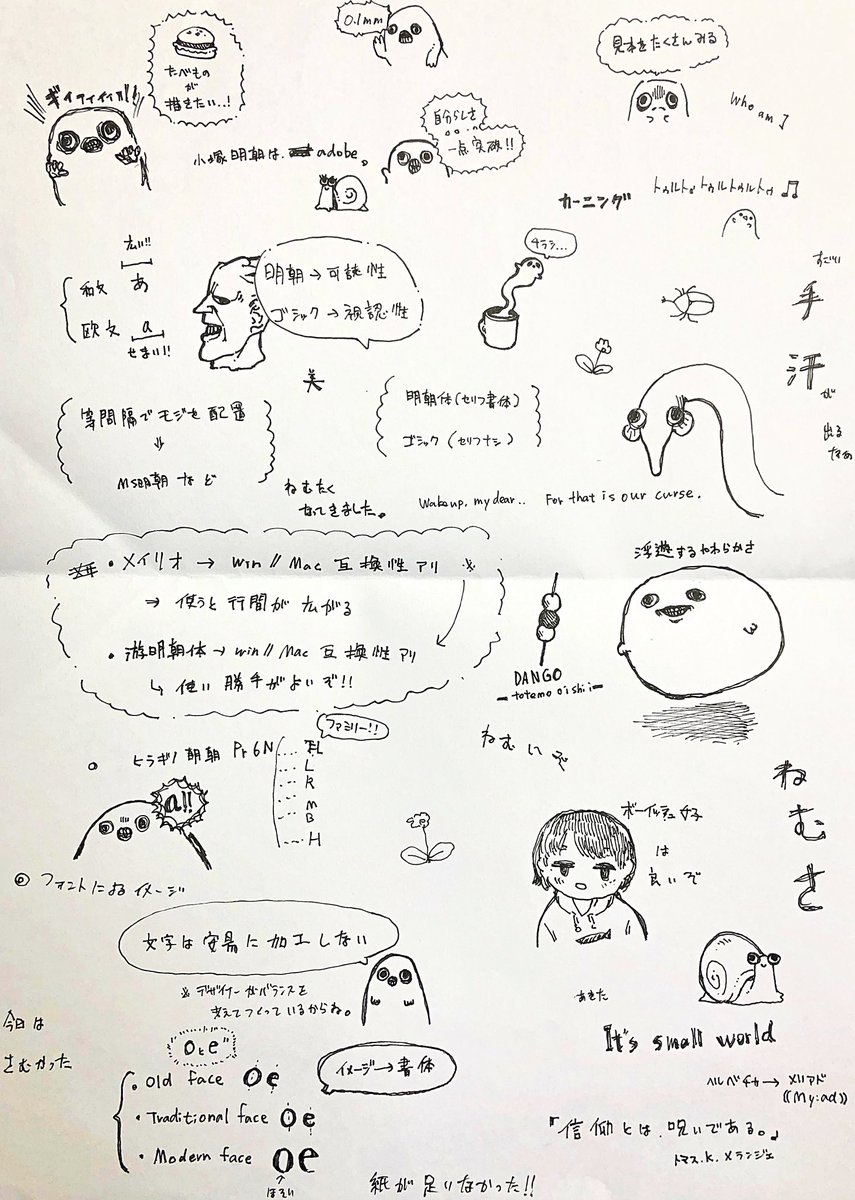 0.1mm
たべもの
が
描きたい..!
見本をたくさんみる
ギィィィィィ!!
Who am I
自分らしさ
一点突破!!
小塚明朝は. adobe。
カーニング
トゥルトゥトゥルトゥルトゥ♫
チラシ...
広い!!
和文 あ
欧文 a
せまい!!
明朝→可読性
ゴシック→視認性
すごい
手
汗
が
出る
なぁ
美
等間隔でモジを配置
⇓
MS明朝など
明朝体(セリフ書体)
ゴシック(セリフナシ)
ねむたく
なってきました。
Wake up, my dear.. For that is our curse.
・メイリオ → win // Mac 互換性アリ
⇒ 使うと行間が広がる
・游明朝体→win // Mac 互換性アリ
↳ 使い勝手がよいぞ!!
浮遊するやわらかさ
DANGO
-totemo oishii-
ファミリー!!
ヒラギノ明朝 Pr6N
L
R
M
B
H
a!!
ねむいぞ
ねむさ
ボーイッシュ女子
は
良いぞ
◎ フォントによるイメージ
文字は安易に加工しない
※デザイナーがバランスを
考えてつくっているからね。
今日は
さむかった
あきた
It's small world
"oとe"
イメージ→書体
・Old face oe
・Traditional face oe
・Modern face oe
↑
ほそい
ヘルベチカ→メリアド
((My:ad))
『信仰とは、呪いである。』
トマス.K.メランジェ
紙が足りなかった!!